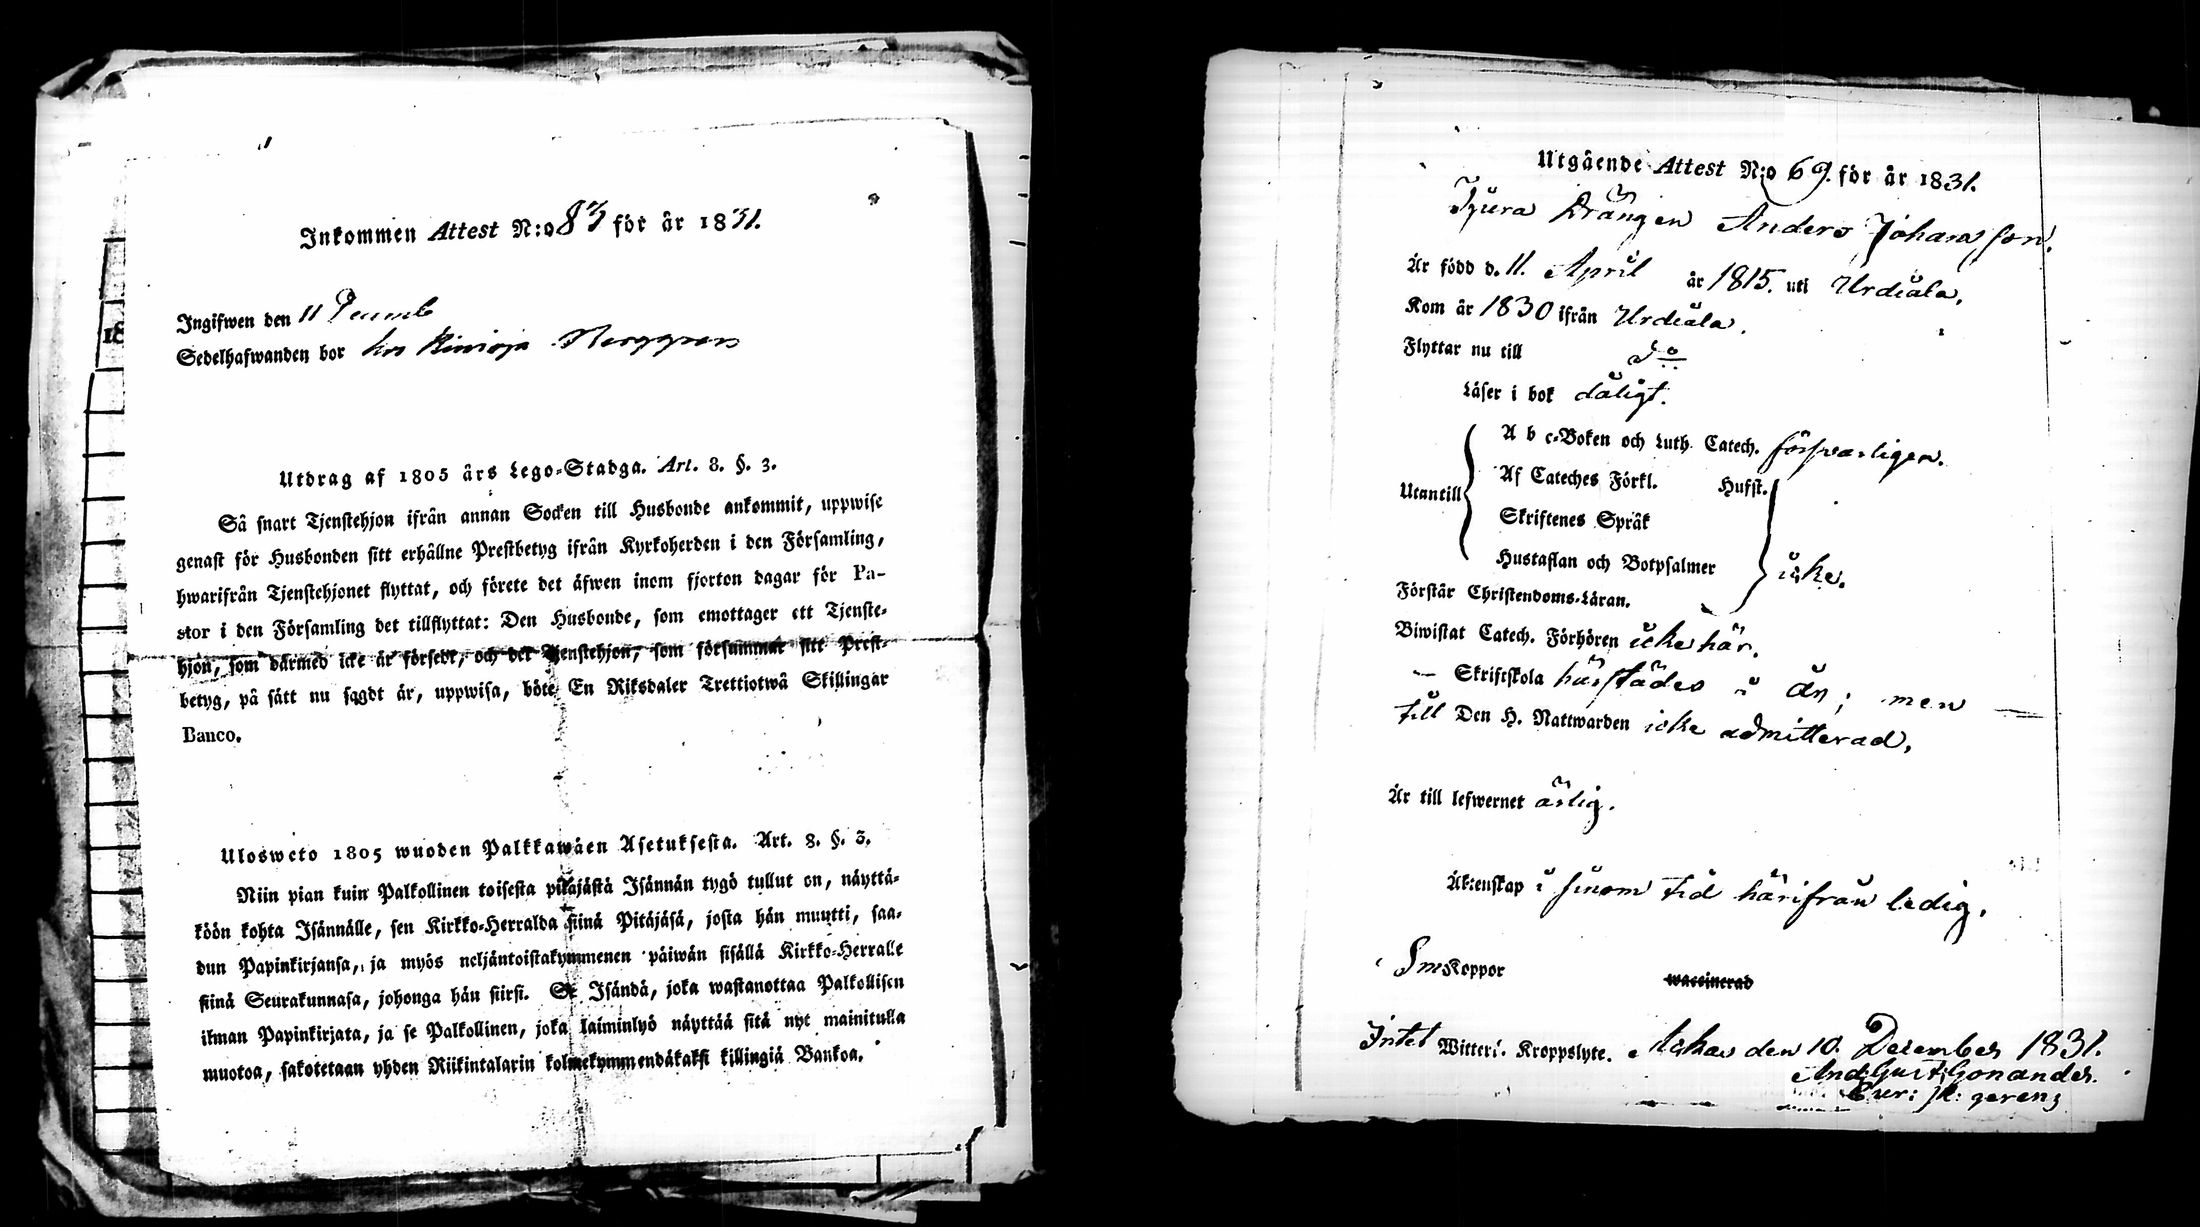 Inkommen Attest N:o 83 för år 1831.
Ingifwen den 11 Decemb
Sedelhafwanden bor hos Berggren
Utdrag af 1805 års Lego-Stadga. Art. 8. §. 3.
Så snart Tjenstehjon ifrån annan Socken till Husbonde ankommit, uppwise
genast för Husbonden sitt erhållne Prestbetyg ifrån Kyrkoherden i den Församling,
hwarifrån Tjenstehjonet flyttat, och förete det äfwen inom fjorton dagar för Pa-
stor i den Församling det tillflyttat: Den Husbonde, som emottager ett Tjenste-
hjon, som dermed icke är försedt, och det Tjenstehjon, som försummar sitt Prest-
betyg, på sätt nu sagdt är, uppwisa, böte En Riksdaler Trettiotwå Skillingar
Banco.
Ulosweto 1805 wuoden Palkkawäen Asetuksesta. Art. 8. §. 3.
Niin pian kuin Palkollinen toisesta pitäjästä Isännän tygö tullut on, näyttä-
köön kohta Isännälle, sen Kirkko-Herralda siinä Pitäjäsä, josta hän muutti, saa-
dun Papinkirjansa, ja myös neljäntoistakymmenen päiwän sisällä Kirkko-Herralle
siinä Seurakunnasa, johonga hän siirsi. Se Isändä, joka wastanottaa Palkollisen
ilman Papinkirjata, ja se Palkollinen, joka laiminlyö näyttää sitä nyt mainitulla
muotoa, sakotetaan yhden Riikintalarin kolmekymmendäkaksi killingiä Bankoa.
Utgående Attest N:o 69. för år 1831.
Drängen Anders Johansson.
Är född d. 11. April år 1815. uti Urdiala.
Kom år 1830 ifrån Urdiala.
Flyttar nu till do
Läser i bok dåligt.
A b c-Boken och Luth. Catech. försvarligen.
Af Cateches Förkl. Hufst.
Utantill
Skriftenes Språk
Hustaflan och Botpsalmer icke.
Förstår Christendoms-Läran.
Biwistat Catech. Förhören icke här.
— Skriftskola härstädes i år; men
till Den H. Nattwarden icke admitterad.
Är till lefwernet ärlig.
Äktenskap i sinom tid härifrån ledig.
SmKoppor waccinerad
Intet Witterl. Kroppslyte. den 10. December 1831.
And: Gust: Gonander.